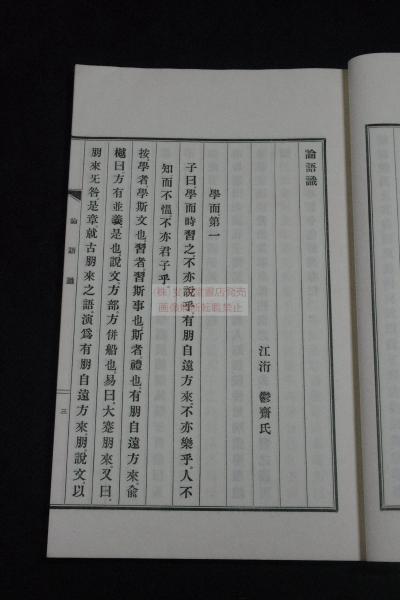 論語識
江洧 鬱齋氏
學而第一
子曰學而時習之、不亦說乎、有朋自遠方來、不亦樂乎、人不
知而不慍、不亦君子乎、
按學者學斯文也、習者習斯事也、斯者禮也、有朋自遠方來、兪
樾曰、方有並義是也、說文、方部、方併船也、易曰、大蹇朋來、又曰、
朋來旡咎、是章就古朋來之語、演爲有朋自遠方來、朋、說文、以
論語識
三
書店発売
画像無断転載禁止